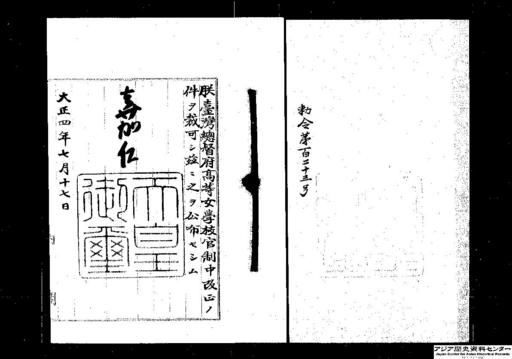 勅令第百二十三号
朕臺灣總督府高等女學校官制中改正ノ
件ヲ裁可シ茲ニ之ヲ公布セシム
嘉仁
天皇
御璽
大正四年七月十七日
内
閣
アジア歴史資料センター
Japan Center for Asian Historical Records